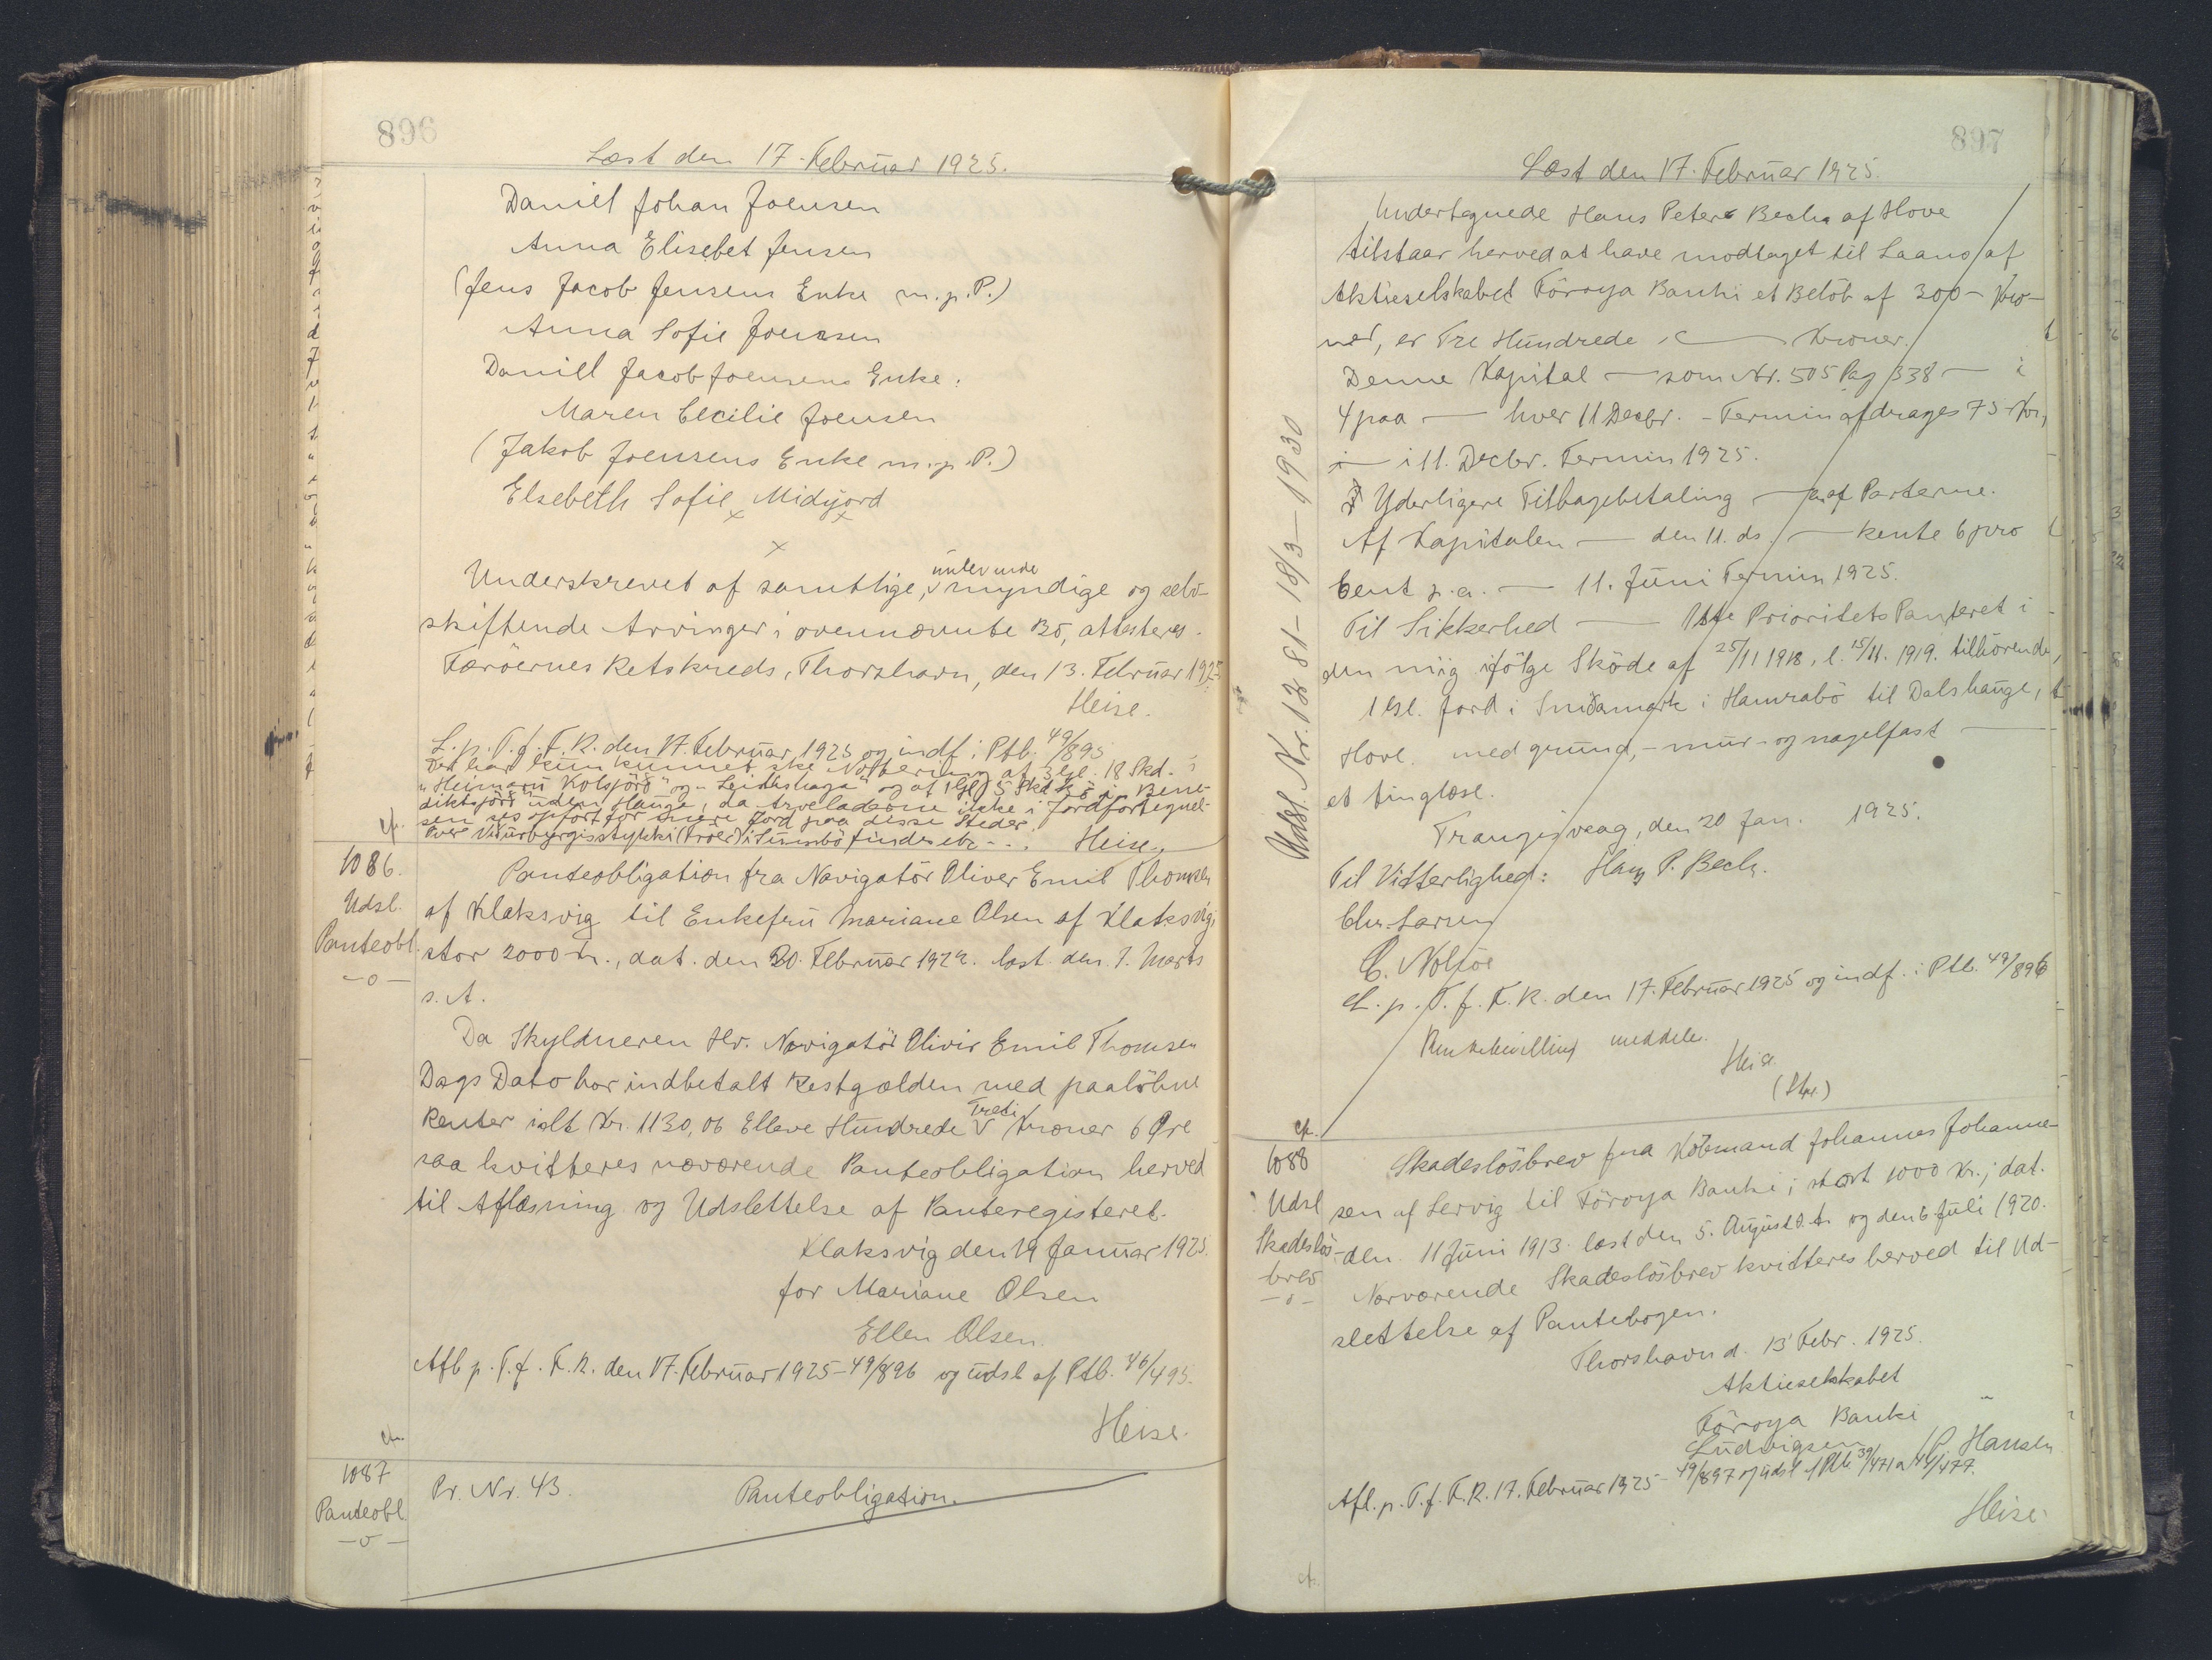 896
Læst den 17. Februar 1925.
Daniel Johan Joensen
Anna Elisebet Jensen
(Jens Jacob Jensens Enke m.p.P.)
Anna Sofie Joensen
Daniel Jacob Joensens Enke:
Maren Cecilie Joensen
(Jakob Joensens Enke m.p.P.)
Elsebeth Sofie Midjord
Underskrevet af samtlige, myndige og selv-
skiftende Arvinger i ovennævnte Bo, attesteres.
Færöernes Retskreds, Thorshavn, den 13. Februar 1925
Heise.
L. p. T. f. F. R. den 17. Februar 1925 og indf. i Ptb. 49/895
Det har kun kunnet ske Notering af 3 Gl. 18 Skd. i
diktsjörd uden Hauge, da Arveladerne ikke i Jordfortegnel-
sen ses opfört for mere Jord paa disse Steder.
Heise.
1086.
Udsl.
Panteobl.
-o-
Panteobligation fra Navigatör Oliver Emil Thomsen
af Klaksvig til Enkefru Mariane Olsen af Klaksvig,
stor 2000 Kr., dat. den 20. Februar 1922. læst den 7. Marts
s. A.
Da Skyldneren Hr. Navigatör Olivir Emil Thomsen
Dags Dato har indbetalt Restgælden med paalöbne
Renter ialt Kr. 1130,06 Elleve Hundrede Tredi Kroner 6 Øre
saa kvitteres nærværende Panteobligation herved
til Aflæsning og Udslettelse af Panteregisteret.
Klaksvig den 19 Januar 1925.
for Mariane Olsen
Ellen Olsen.
Afl. p. T. f. F. R. den 17. Februar 1925 - 49/896 og udsl. af Ptb. 46/495.
Heise.
1087
Panteobl.
-o-
Pr. Nr. 43. Panteobligation.
897
Læst den 17. Februar 1925.
Undertegnede Hans Peter Bech af Hove
tilstaar herved at have modtaget til Laans af
Aktieselskabet Föroya Banki et Belöb af 300 - Kro-
ner, er Tre Hundrede Kroner.
Denne Kapital — som Nr. 505 Pag 338 — i
4 paa — hver 11 Decbr. - Termin afdrages 75 Kr.,
i 11. Decbr. Termin 1925.
Yderligere Tilbagebetaling — af Parterne.
Af Kapitalen — den 11. ds. — Rente 6 pro
Cent p. a. — 11. Juni Termin 1925.
Til Sikkerhed — 1ste Prioritets Panteret i
den mig ifölge Sköde af 25/11 1918, l. 15/11. 1919. tilhörende,
1 Gl. Jord i Smidamørk i Hamrabö til Dalshauge,
Hove. med grund,- mur- og nagelfast —
et tinglæse.
Trangisvaag, den 20 Jan. 1925.
Til Vitterlighed: Hans P. Bech.
Chr. Larsen
C. Nolsöe
L. p. T. f. F. R. den 17. Februar 1925 og indf. i Ptb. 49/896
Rentebevilling meddeles.
Heise.
Udsl. Nr. 1281 - 18/3 - 1930
1088
Udsl
Skadeslös-
brev
-o-
Skadeslösbrev fra Köbmand Johannes Johanne-
sen af Lervig til Föroya Banki; stort 1000 Kr.; dat.
den 11 Juni 1913. læst den 5. August s. A. og den 6. Juli 1920.
Nærværende Skadeslösbrev kvitteres herved til Ud-
slettelse af Pantebogen.
Thorshavn d. 13 Febr. 1925.
Aktieselskabet
Föroya Banki
Ludvigsen P. Hansen
Afl. p. T. f. F. R. 17. Februar 1925 - 49/897 og udsl. af Ptb. 39/471
Heise.